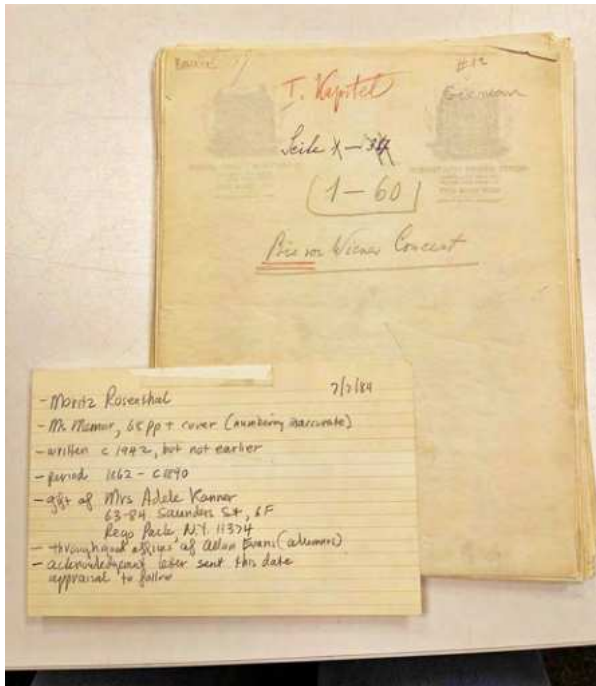 #12
German
I. Kapitel
Seite
(1-60)
Bis vor Wiener Concert
7/2/84
- Moritz Rosenthal
- Ms Memoir, 65 pp + cover (numbering inaccurate)
- written c 1942, but not earlier
- period 1862 - c1890
- gift of Mrs Adele Kanner
63-84 Saunders St, 6F
Rego Park, N.Y. 11374
- through good offices of Allan Evans (alumnus)
- acknowledgment letter sent this date
appraisal to follow